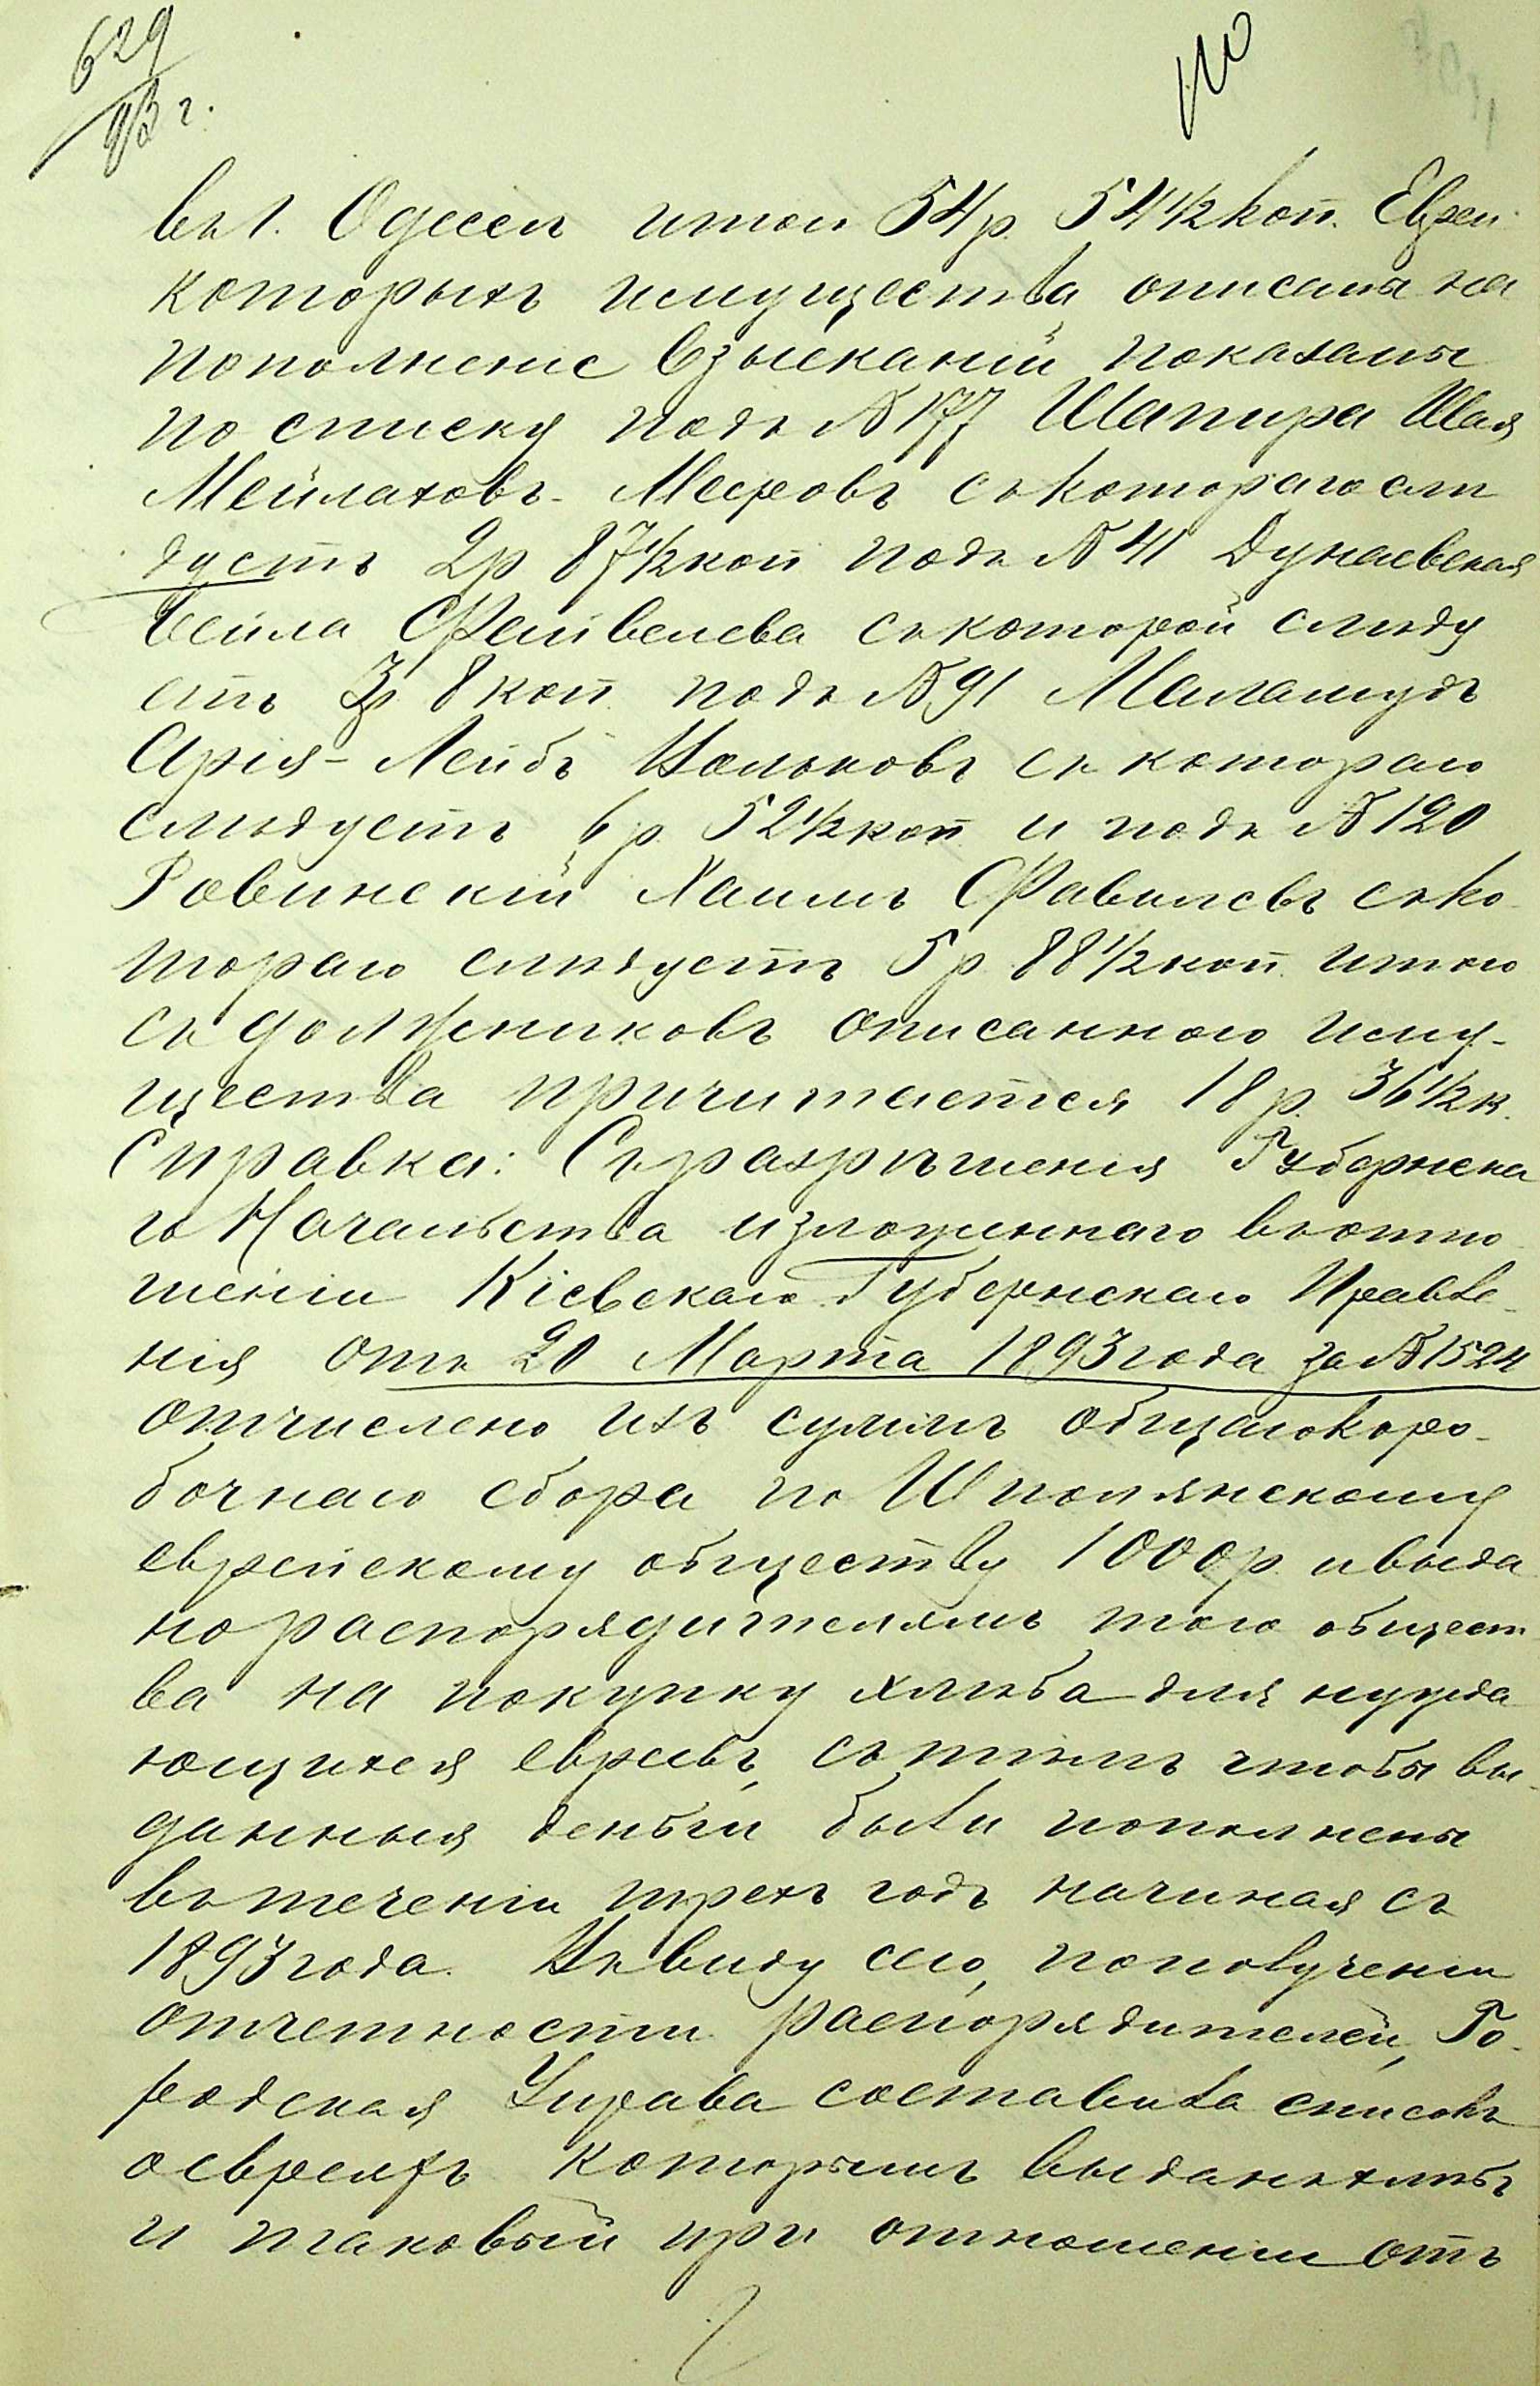 629
93 г.
въ г. Одессѣ итого 54р. 54½ коп. Евреи
которыхъ имущества описаны на
пополненіе взысканій показаны
по списку подъ №177 Шапира Шая
Мейлаховъ-Мееровъ съ котораго слѣ
дуетъ 2р 87½ коп подъ №41 Дунаевская
Бейла Файвелева съ которой слѣду
етъ 3р. 8 коп. подъ №91 Меламудъ
Арія-Лейбъ Вольковъ съ котораго
слѣдуетъ 6 р. 52½ коп и подъ №120
Ровинскій Хаимъ Равилевъ съ ко
тораго слѣдуетъ 5 р. 88½ коп. итого
съ должниковъ описанного иму-
щества причитается 18 р. 36½ к.
Справка: Съ разрѣшенія Губернска
го Начальства изложеннаго въ отно
шеніи Кіевскаго Губернскаго Правле-
нія отъ 20 Марта 1893 года за №1524
отчислено изъ суммъ общаго коро-
бочнаго сбора по Шполянскому
еврейскому обществу 1000р. и выда
но распорядителямъ того общест
ва на покупку хлѣба для нужда
ющихся евреевъ, съ тѣмъ чтобы вы-
данныя деньги были пополнены
въ теченіи трехъ годъ начиная съ
1893 года. Въ виду сего, по полученіи
отчетности распорядителей, Го-
родская Управа составила списокъ
о евреяхъ которымъ выданъ хлѣбъ
и таковый при отношеніи отъ